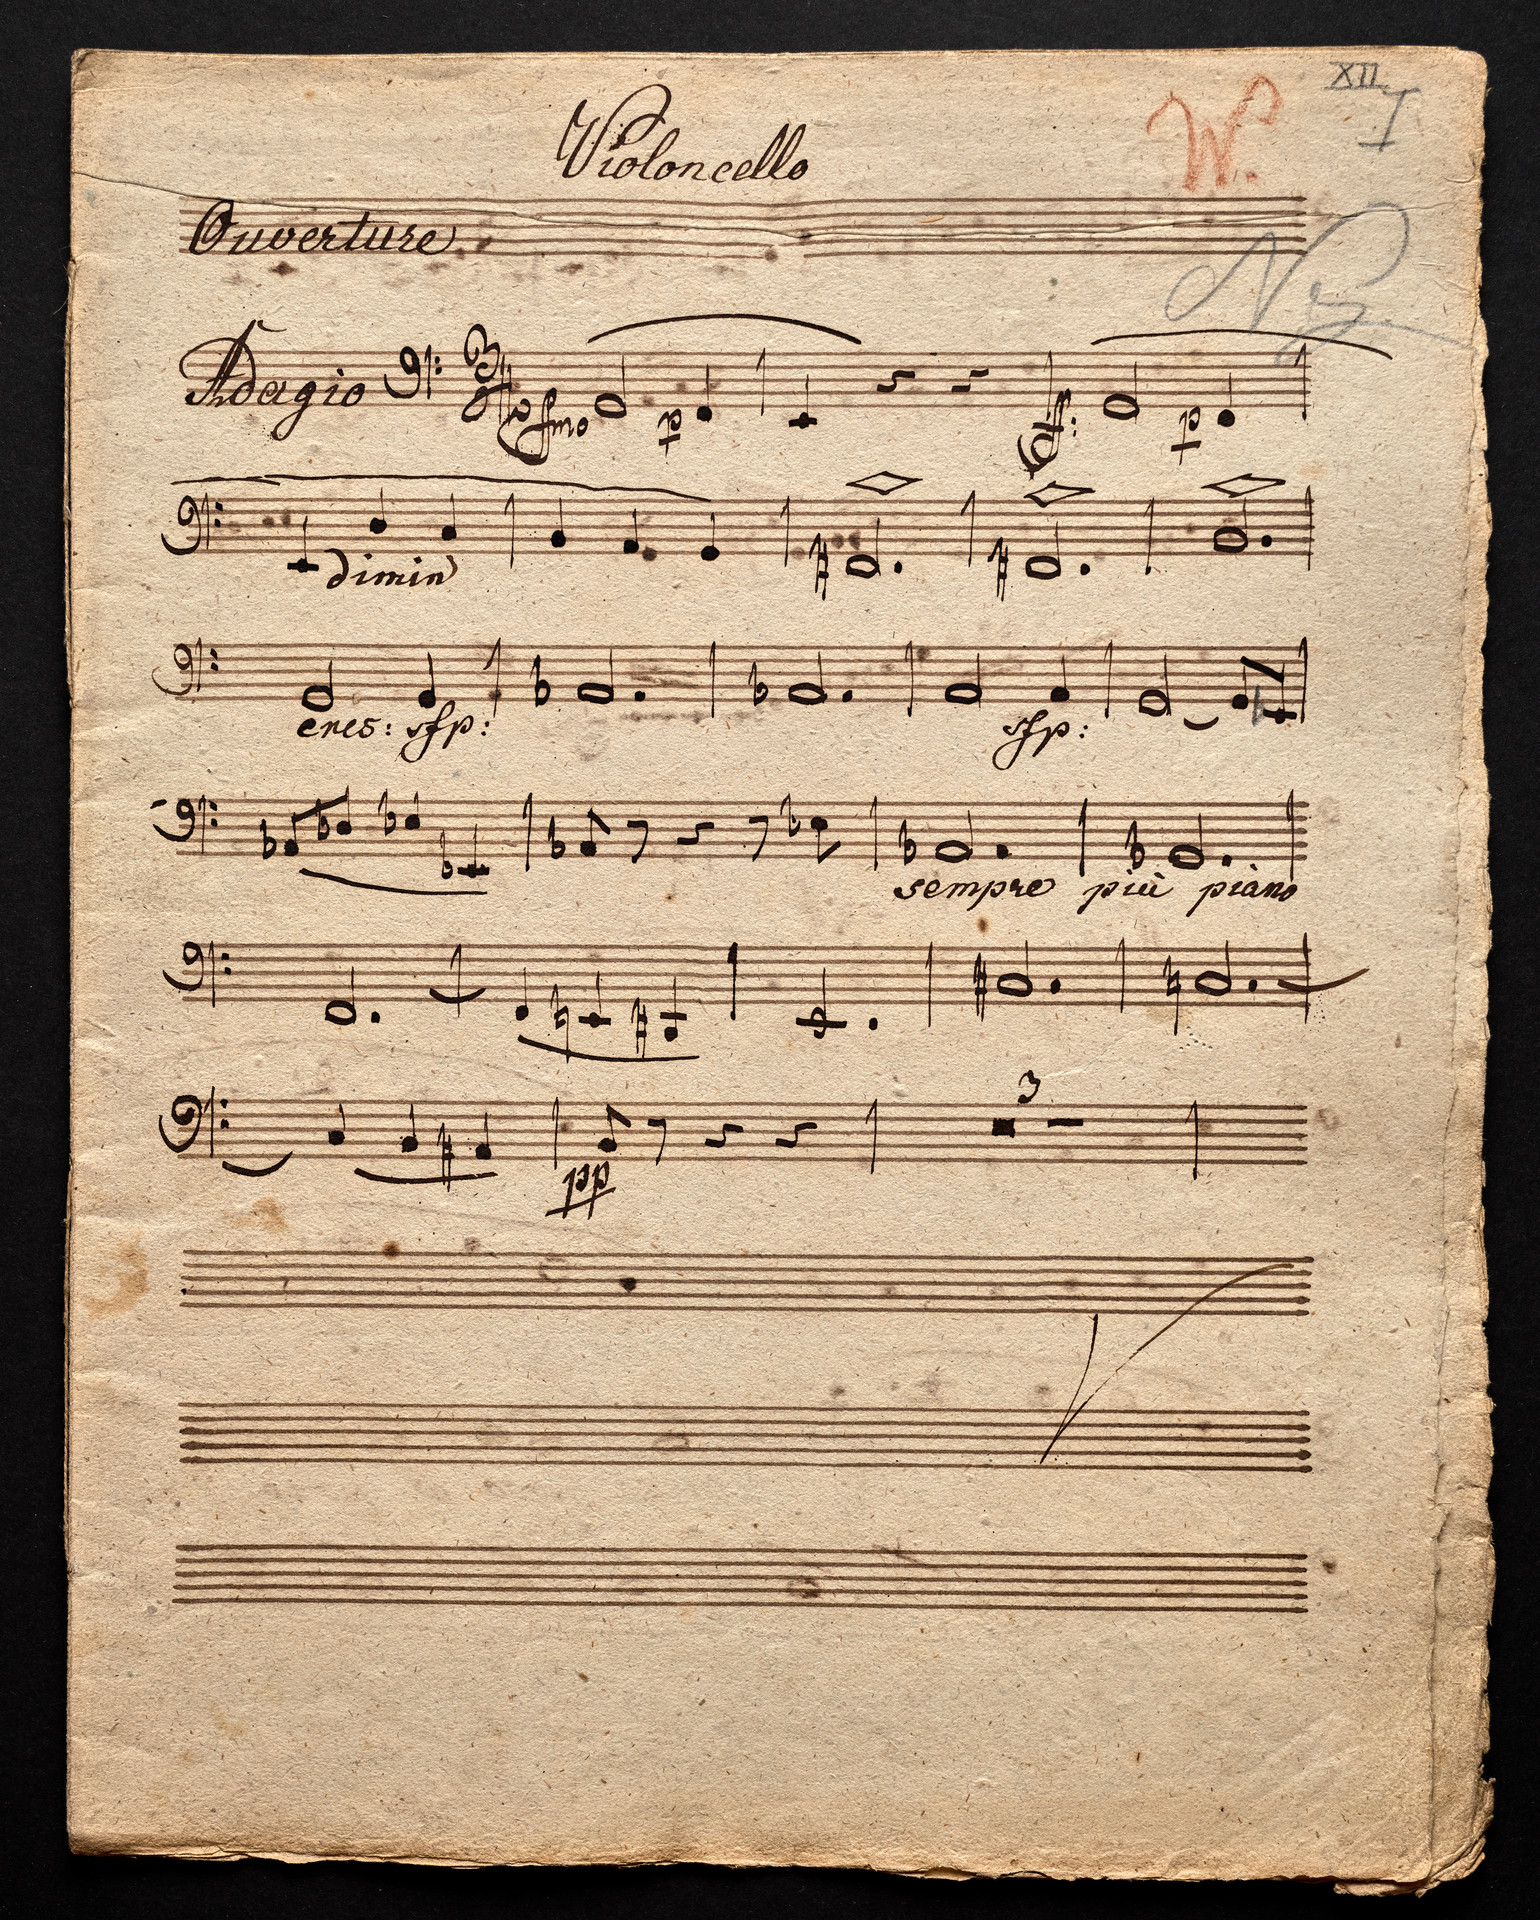 XII
I
W.
Violoncello
Ouverture
Adagio p ff: p
dimin
cres: sfp: sfp:
sempre più piano
3
pp